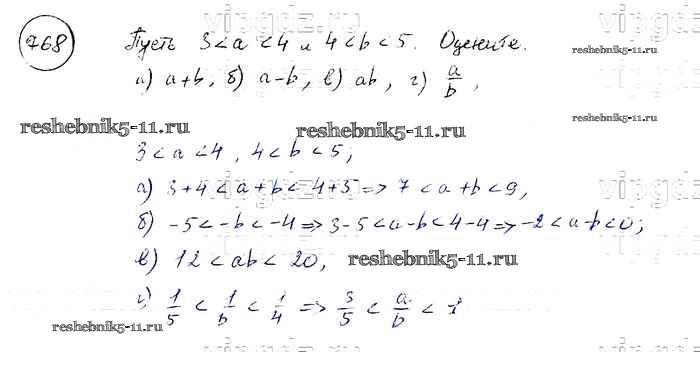 vipgdz.ru vipgdz.ru
768 Пусть 3<a<4 и 4<b<5. Оцените.
а) a+b, б) a-b, в) ab, г) a/b,
reshebnik5-11.ru reshebnik5-11.ru
3<a<4, 4<b<5;
а) 3+4<a+b<4+5=>7<a+b<9,
б) -5<-b<-4=>3-5<a-b<4-4=>-2<a-b<0;
в) 12<ab<20, reshebnik5-11.ru
г) 1/5<1/b<1/4=>3/5<a/b<1
reshebnik5-11.ru